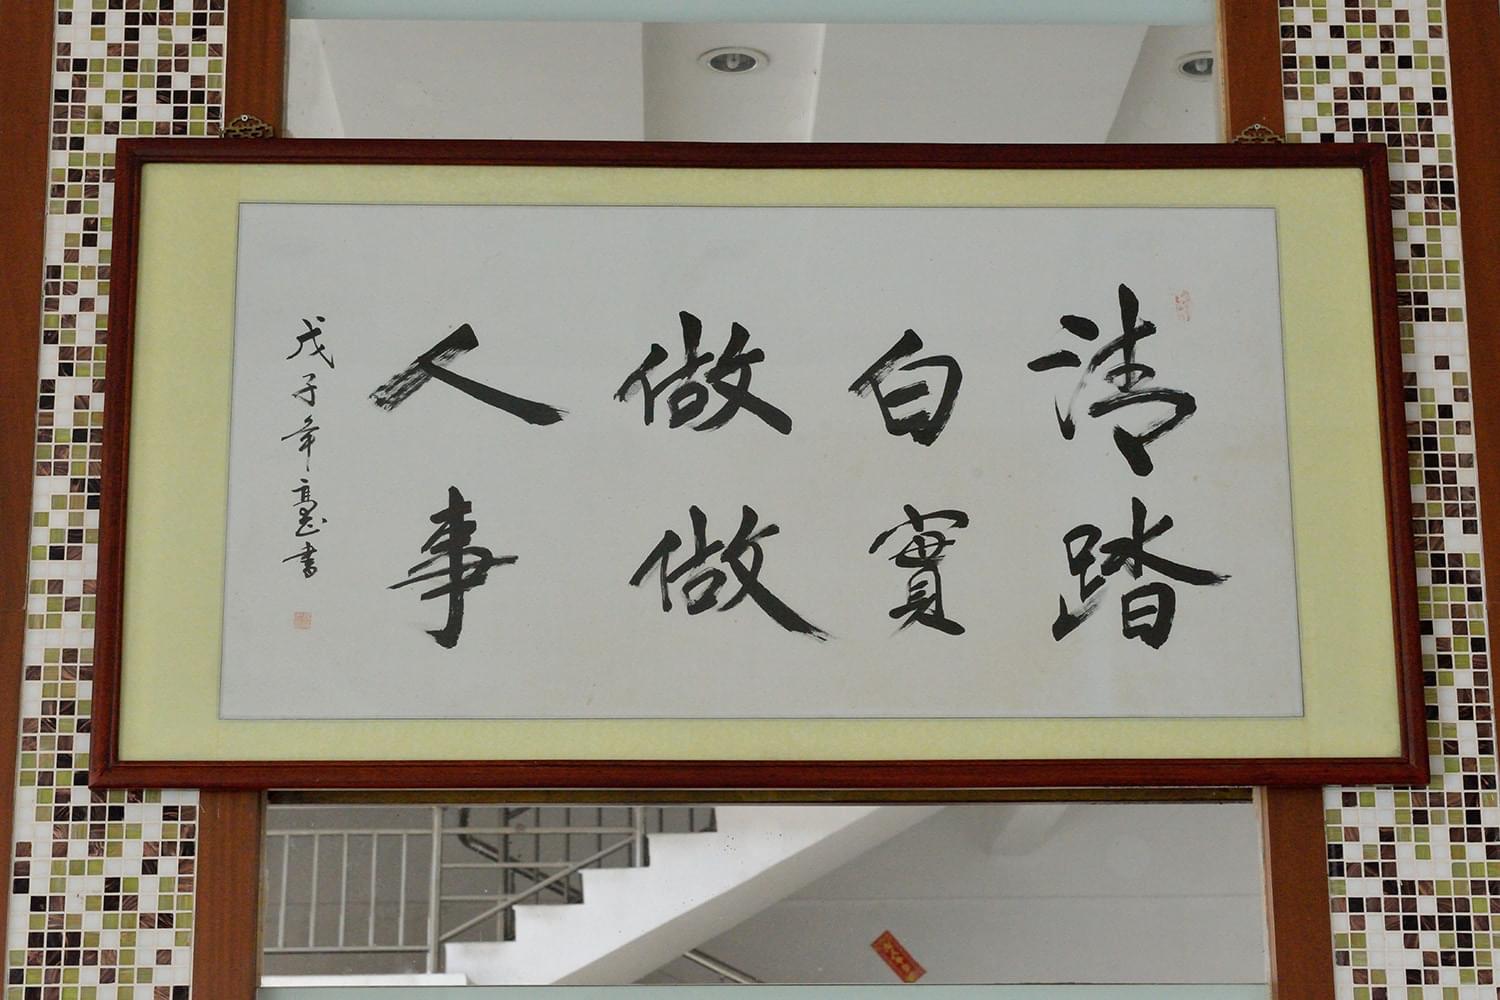 清白做人
踏實做事
戊子年高書